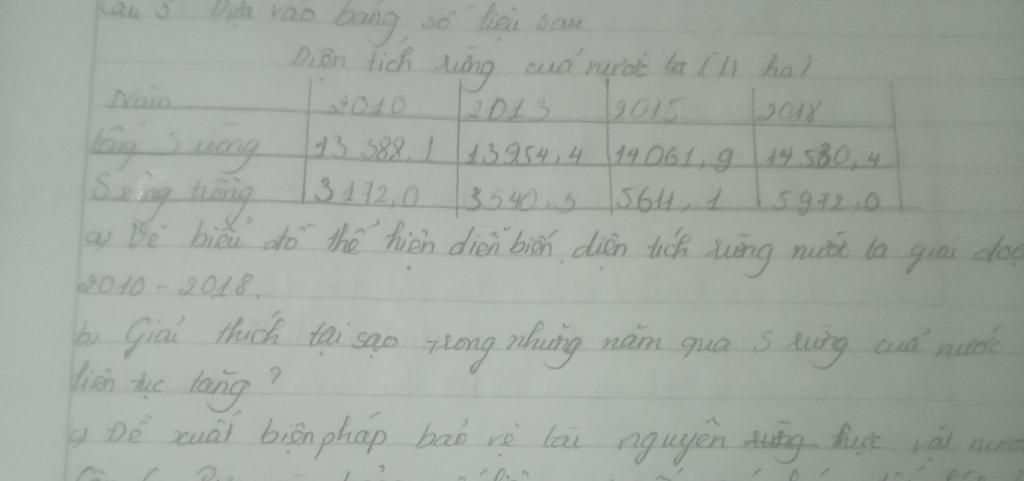 Câu 5 Dựa vào bảng số liệu sau
Diện tích rừng cuả nước ta ( ha)
Năm 2010 2013 2015 2018
tổng S rừng 13 388,1 13954,4 14061,9 14580,4
S rừng trồng 3172,0 3540,3 5611,1 5972,0
a) Vẽ biểu đồ thể hiện diễn biến diện tích rừng nước ta giai đoạ
2010 - 2018.
b, Giải thích tại sao trong những năm qua S rừng cuả nước
liên tục tăng?
c) Đề xuất biện pháp bảo vệ tài nguyên thực vật nước